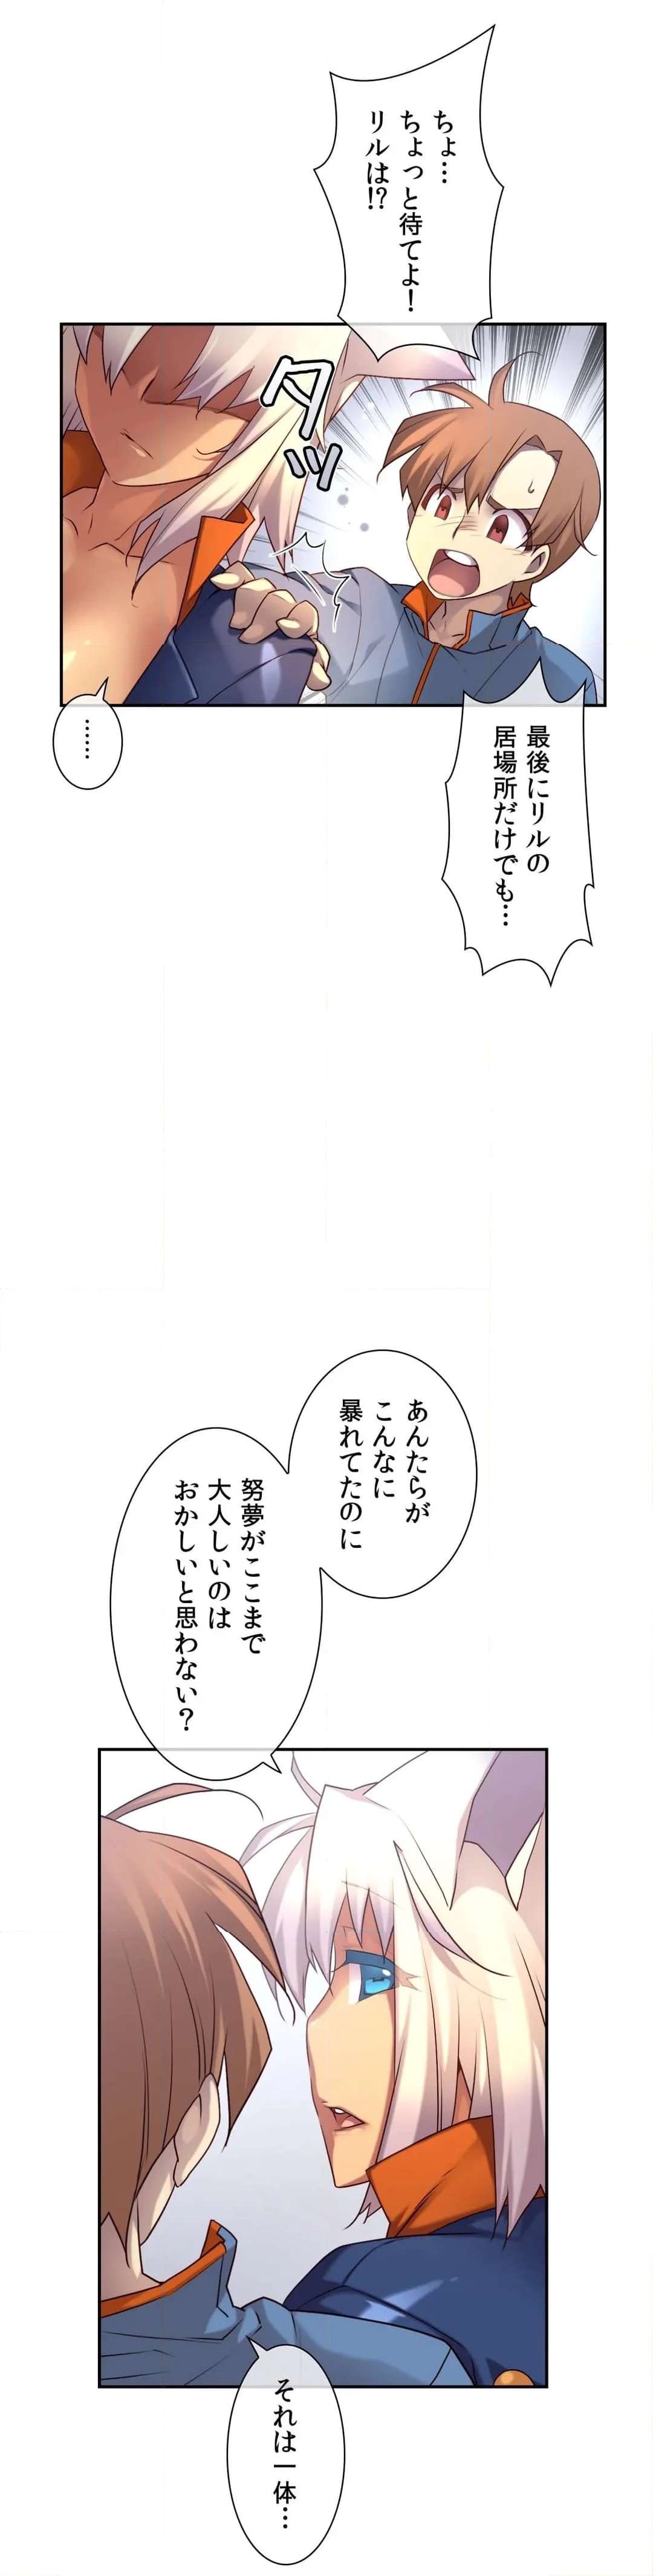 ちょ…
ちょっと待てよ！
リルは!?
タッ
最後にリルの
居場所だけでも…
……
あんたらが
こんなに
暴れてたのに
努夢がここまで
大人しいのは
おかしいと思わない？
それは一体…